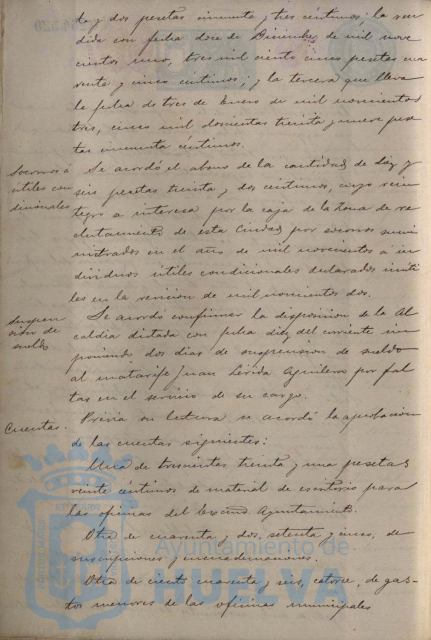 ta y dos pesetas cincuenta y tres céntimos; la ren
dida con fecha doce de Diciembre de mil nove
cientos uno, tres mil ciento cinco pesetas cua
renta y cinco céntimos; y la tercera que lleva
la fecha de tres de Enero de mil novecientos
tres, cinco mil doscientas treinta y nueve pese
tas cincuenta céntimos.
Socorros á
útiles con
dicionales
Se acordó el abono de la cantidad de diez y
seis pesetas treinta y dos céntimos, cuyo rein
tegro a interesa por la caja de la Zona de re
clutamiento de esta Ciudad por socorros sumi
nistrados en el año de mil novecientos a in
dividuos útiles condicionales declarados inúti
les en la revision de mil novecientos dos.
Suspen
sión de
sueldo
Se acordó confirmar la disposicion de la Al
caldia dictada con fecha diez del corriente im
poniendo dos dias de suspension de sueldo
al matarife Juan Lérida Aguilera por fal
tas en el servicio de su cargo.
Cuentas.
Previa su lectura se acordó la aprobacion
de las cuentas siguientes:
Una de trescientas treinta y una pesetas
veinte céntimos de material de escritorio para
las oficinas del Excmo. Ayuntamiento.
Otra de cuarenta y dos, setenta y cinco, de
suscripciones y encuadernaciones.
Otra de ciento cuarenta y seis, catorce, de gas
tos menores de las oficinas municipales
Ayuntamiento de
HUELVA